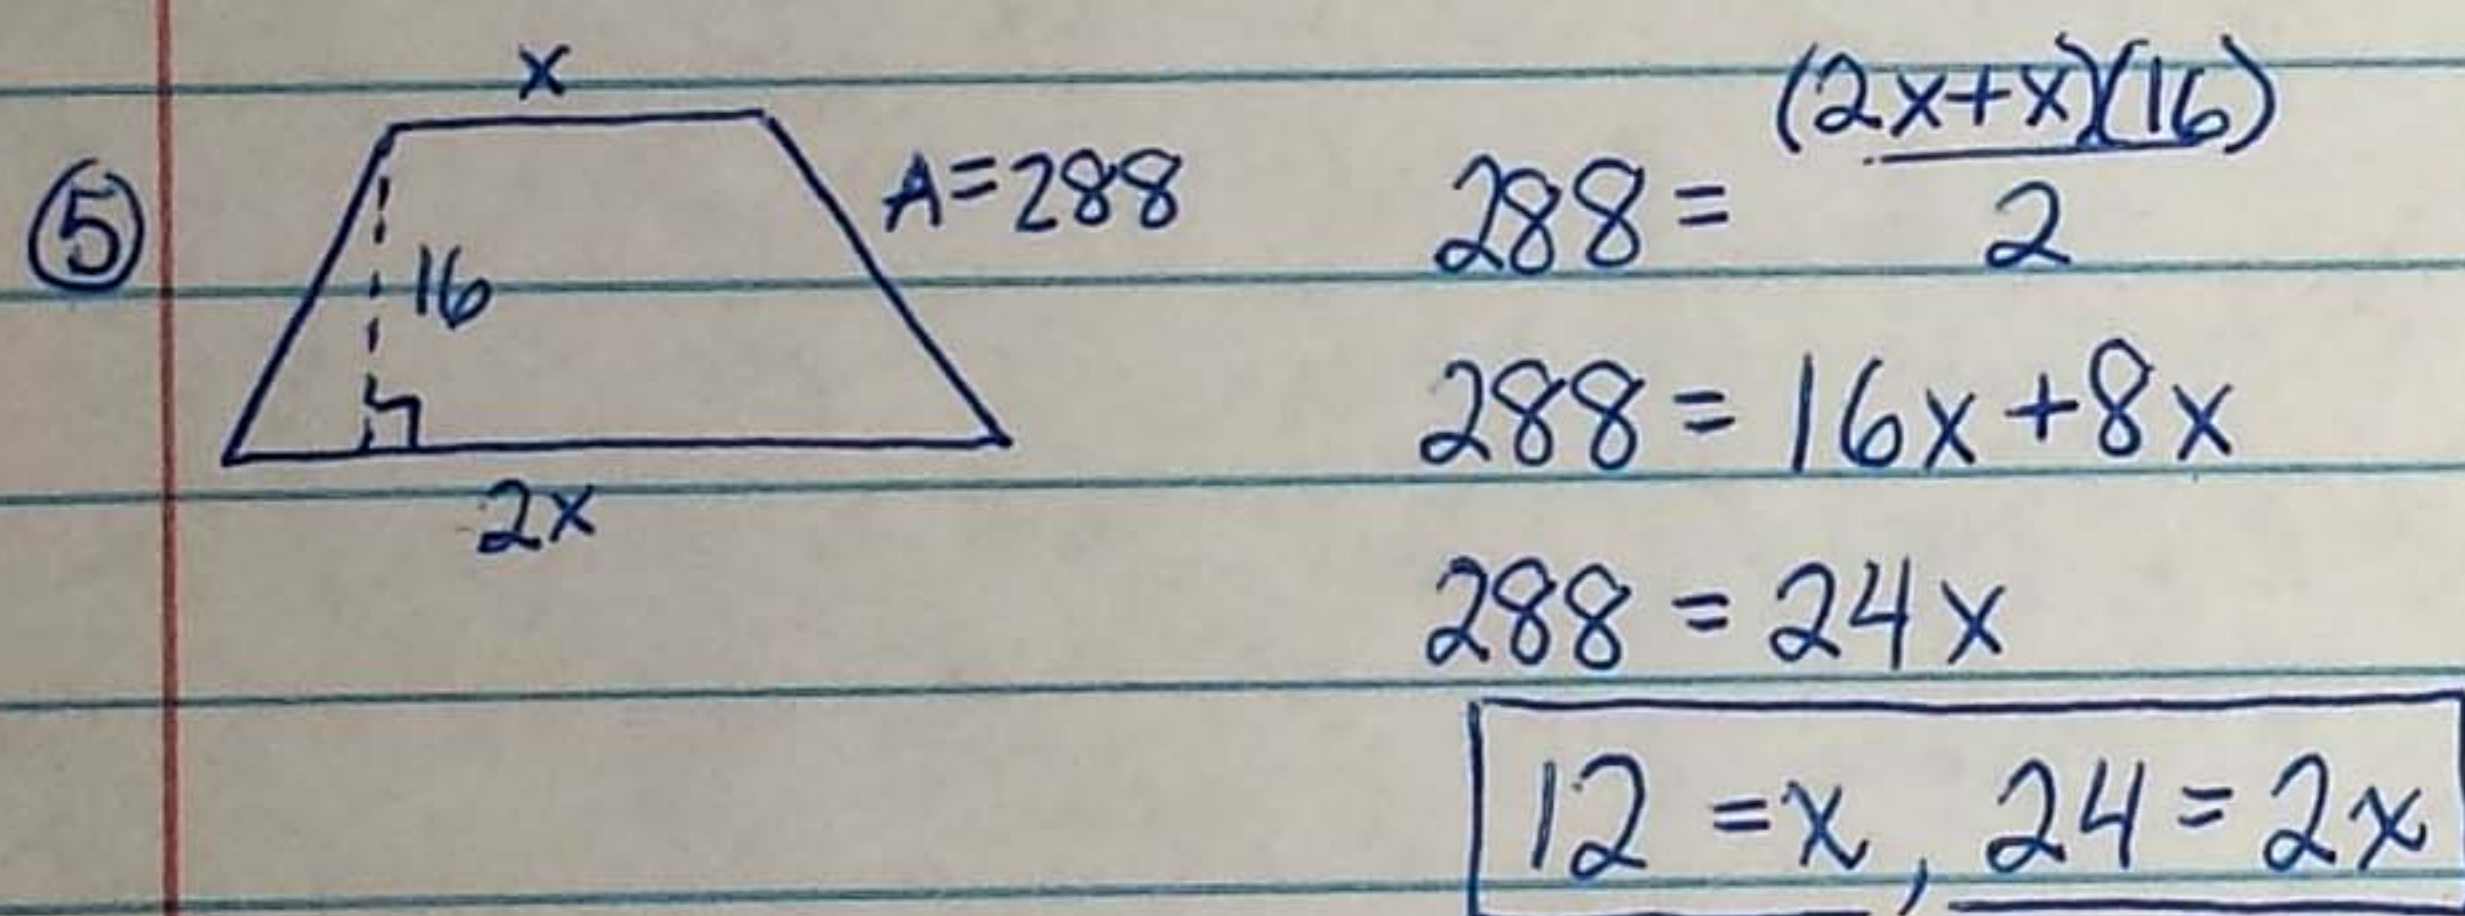 ⑤
x
16
2x
A=288
288 = (2x+x)(16) / 2
288 = 16x+8x
288 = 24x
12 = x, 24 = 2x